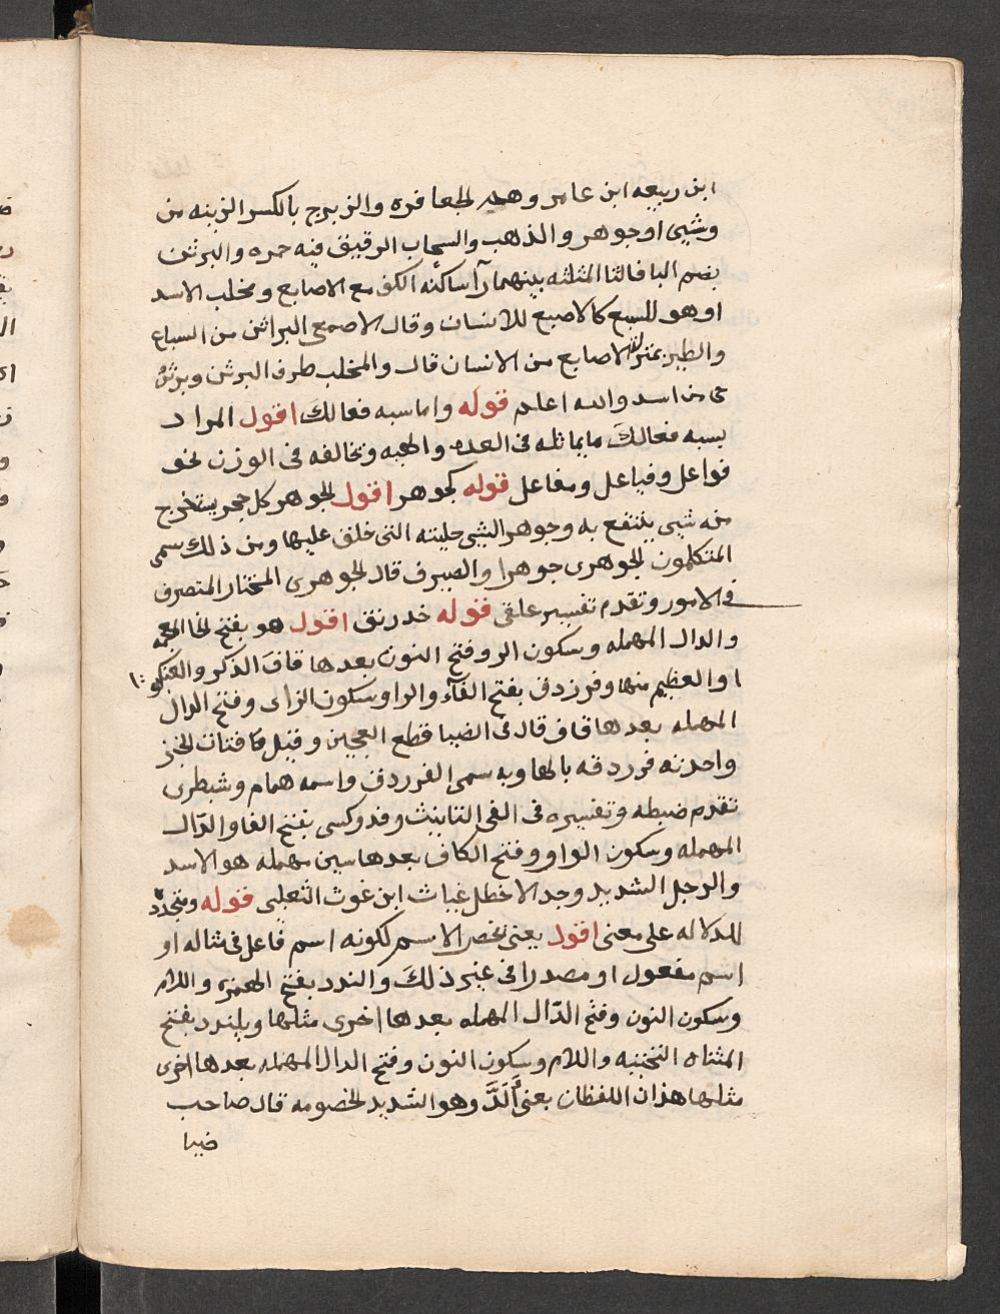 ابن ربيعه ابن عامر وهم الجعافره والزبرج بالكسر الزينه من
وشي او جوهر والذهب والسحاب الرقيق فيه حمره والبرثن
بضم البا فالثا المثلثه بينهما رآ ساكنه الكف مع الاصابع ومخلب الاسد
او هو للسبع كالاصبع للانسان وقال الاصمعي البراثن من السباع
والطير بمنزلة الاصابع من الانسان قال والمخلب ظرف البرثن وبرثن
حي من اسد والله اعلم قوله واما سبه فعالك اقول المراد
بسبه فعالك ما يماثله في العده والهيه ويخالفه في الوزن نحو
فواعل وفياعل ومفاعل قوله كجوهر اقول الجوهر كل حجر يستخرج
منه شي ينتفع به وجوهر الشي حليته التي خلق عليها ومن ذلك سمى
المتكلمون الجوهري جوهرا والصيرف قال الجوهري المختار المتصرف
في الامور وتقدم تفسير علقى قوله خدرنق اقول هو بفتح الخا المعجمه
والدال المهمله وسكون الر وفتح النون بعدها قاف الذكر والعنكبو
ا والعظيم منها وفرزدق بفتح الفآء والرا وسكون الزاى وفتح الدال
المهمله بعدها قاف قال في الضيا قطع العجين وقيل فتات الخبز
واحدته فرزدقه بالها وبه سمى الفرزدق واسمه همام وشبطرى
تقدم ضبطه وتفسيره في الفي التانيث وفدوكس بفتح الفا والدّال
المهمله وسكون الواو وفتح الكاف بعدها سين مهمله هو الاسد
والرجل الشديد وجد الاخطل غياث ابن غوث الثعلبي قوله ومتجدد
للدلاله على معنى اقول يعني نحصر الاسم لكونه اسم فاعل في مثاله او
اسم مفعول او مصدرا في غير ذلك والندد بفتح الهمزه واللام
وسكون النون وفتح الدّال المهمله بعدها اخرى مثلها ويلندد بفتح
المثناه التحتيه واللام وسكون النون وفتح الدال المهمله بعدها اخرى
مثلها هذان اللفظان بمعنى ألَدَّ وهو الشديد الخصومه قال صاحب
ضيا